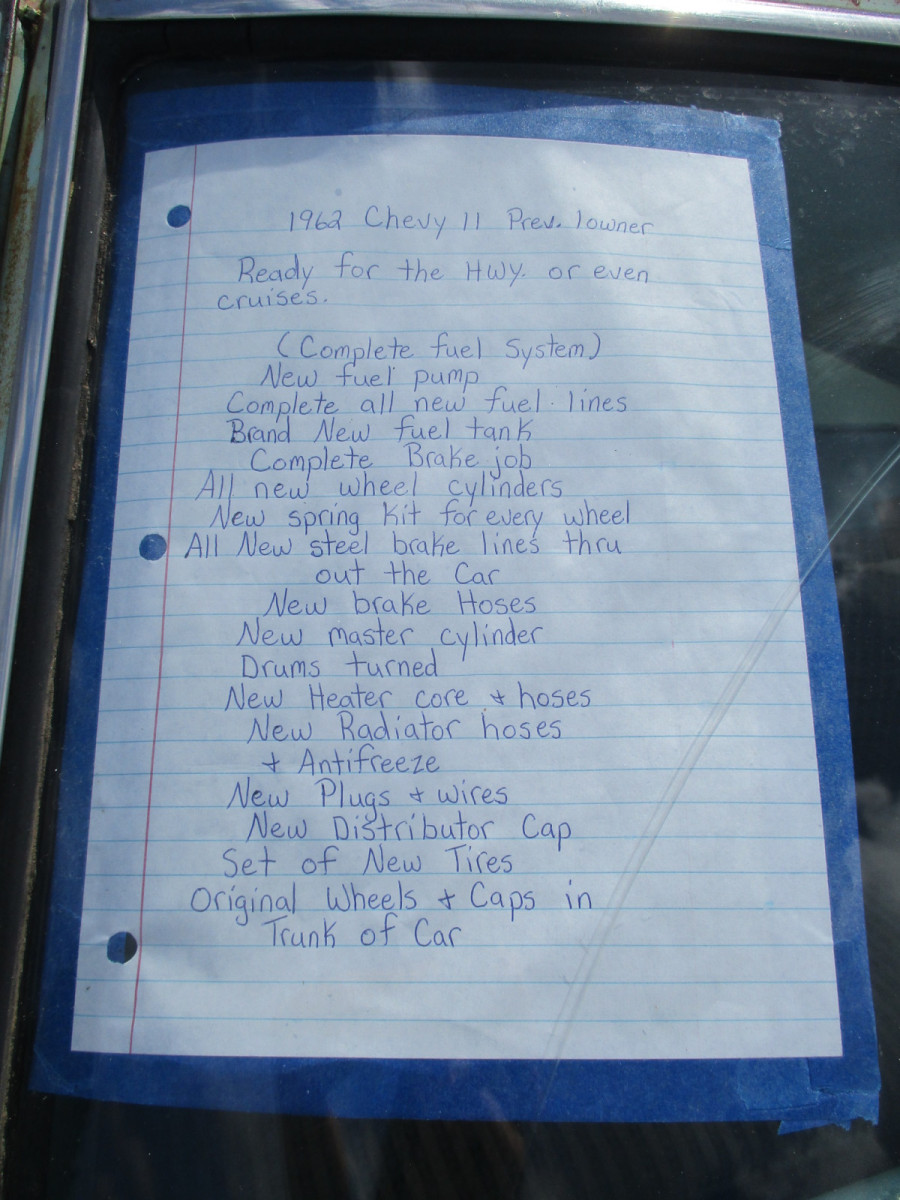 1962 Chevy 11 Prev. 1owner
Ready for the Hwy. or even
cruises.
(Complete fuel System)
New fuel pump
Complete all new fuel lines
Brand New fuel tank
Complete Brake job
All new wheel cylinders
New spring Kit for every wheel
All New steel brake lines thru
out the Car
New brake Hoses
New master cylinder
Drums turned
New Heater core & hoses
New Radiator hoses
& Antifreeze
New Plugs & wires
New Distributor Cap
Set of New Tires
Original Wheels & Caps in
Trunk of Car